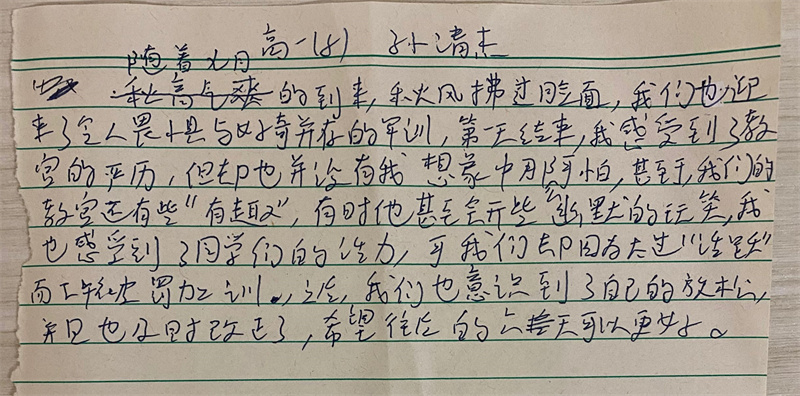 高一(8) 孙清杰
随着九月
秋高气爽的到来,秋风拂过脸面,我们也迎
来了令人畏惧与好奇并存的军训,第一天结束,我感受到了教
官的严历,但却也并没有我想象中那阿怕,甚至于,我们的
教官还有些“有趣”,有时他甚至会开些幽默的玩笑,我
也感受到了同学们的活力,可我们却因为太过“活跃”
而上午被罚加训,之后,我们也意识到了自己的放松,
并且也及时改正了,希望往后的六天可以更好。